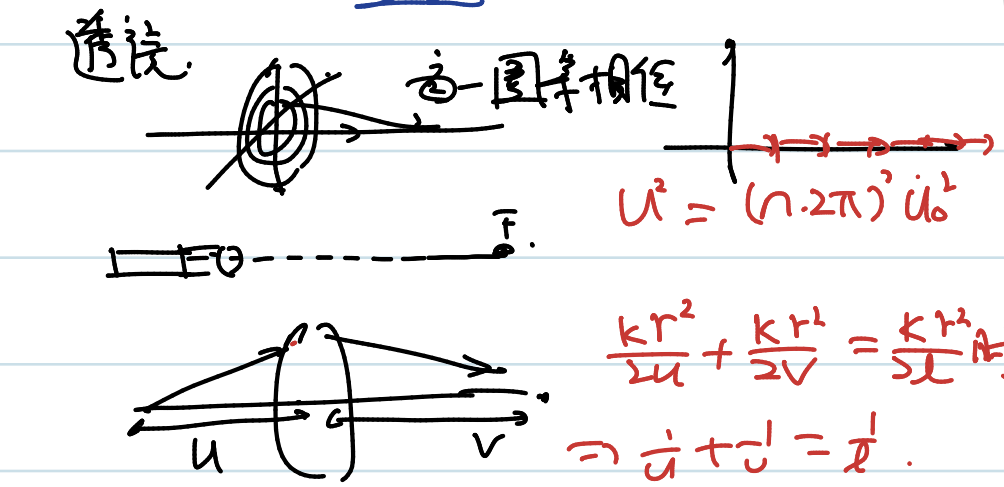 透镜.
同一图案相位
U² = (n·2π)² U₀²
F.
kr²/2u + kr²/2v = kr²/2l
⇒ 1/u + 1/v = 1/l.
u v